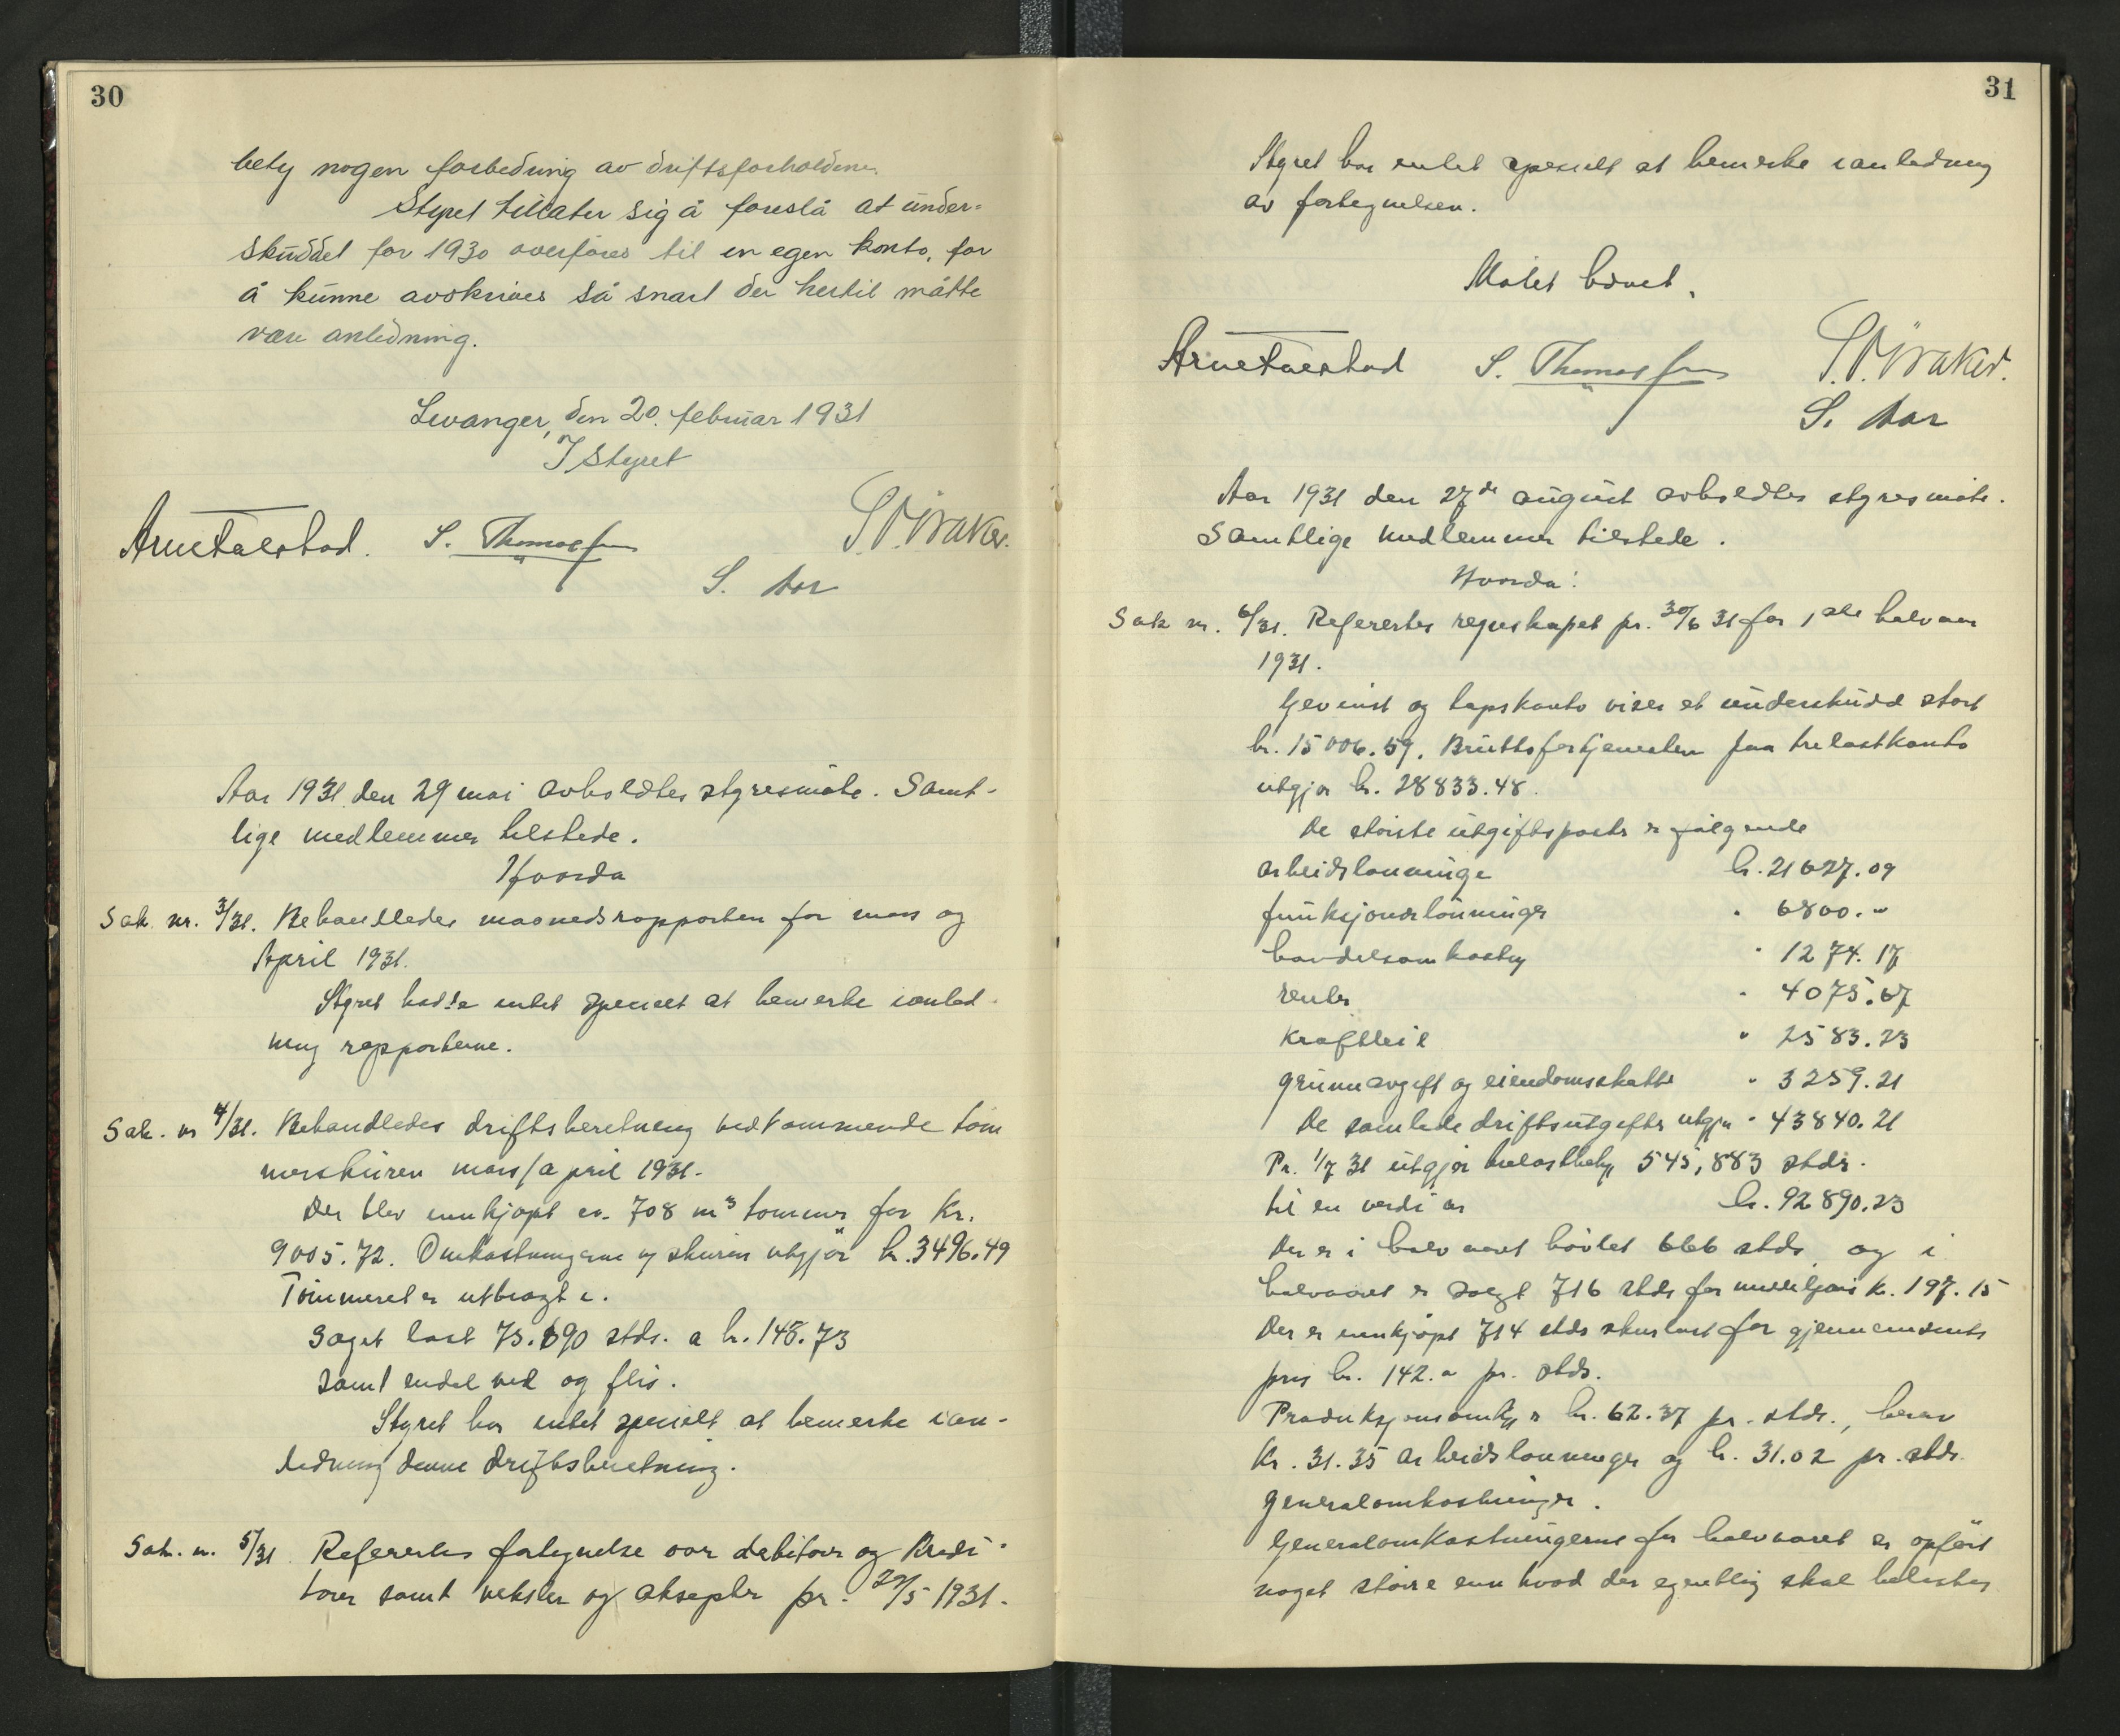 30
bety nogen forbedring av driftsforholdene.
Styret tillater sig å foreslå at under-
skuddet for 1930 overføres til en egen konto, for
å kunne avskrives så snart der hertil måtte
være anledning.
Levanger, den 20. februar 1931
I Styret
Arne Falstad. S. Thomassen S. Aar
Aar 1931 den 29 mai avholdtes styresmøte. Samt-
lige medlemmer tilstede.
Hvorda
Sak nr. 3/31. Behandledes maanedsrapporten for mars og
April 1931.
Styret hadde intet specielt at bemerke ianled-
ning rapporterne.
Sak. nr 4/31. Behandledes driftsberetning vedkommende tøm
merskuren mars/april 1931.
Der blev innkjøpt ca. 708 m³ tømmer for Kr.
9005.72. Omkostningerne og skuren utgjør kr. 3496.49
Tømmeret er utbragt i.
Saget last 75.690 stds. a kr. 148.73
samt endel ved og flis.
Styret har intet specielt at bemerke ian-
ledning denne driftsberetning.
Sak. nr. 5/31 Referertes fortegnelse over debitorer og Kredi-
torer samt veksler og aksepter pr. 29/5 1931.
31
Styret har intet specielt at bemerke ianledning
av fortegnelsen.
Møtet hævet.
Arne Falstad S. Thomassen
S. Aar
Aar 1931 den 27de august avholdtes styresmøte.
Samtlige medlemmer tilstede.
Hvorda:
Sak nr. 6/31. Referertes regnskapet pr. 30/6 31 for 1ste halvaar
1931.
Gevinst og tapskonto viser et underskudd stort
kr. 15006.59. Bruttofortjenesten paa trelastkonto
utgjør kr. 28833.48.
De største utgiftsposter er følgende
arbeidslønninger kr. 21627.09
funksjonærlønninger " 6800.-
handelsomkostng " 1274.17
renter " 4075.67
Kraftleie " 2583.23
grunnavgift og eiendomsskatte " 3259.21
De samlede driftsutgifter utgjør " 43840.21
Pr. 1/7 31 utgjør trelastbehg 545,883 stds.
til en verdi av kr. 92890.23
Der er i halvaaret høvlet 666 stds. og i
halvaaret er solgt 716 stds for middelpris kr. 197.15
Der er innkjøpt 714 stds skurlast for gjennemsnits
pris kr. 142.- pr. stds.
Produksjonsomkg er kr. 62.37 pr. stds., herav
Kr. 31.35 arbeidslønninger og kr. 31.02 pr. stds.
generalomkostninger.
Generalomkostningerne for halvaaret er opført
noget større enn hvad der egentlig skal belastes